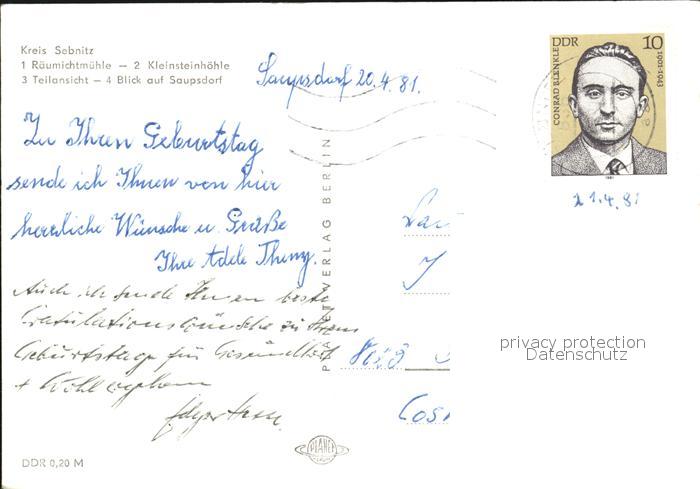 Kreis Sebnitz
1 Räumichtmühle — 2 Kleinsteinhöhle
3 Teilansicht — 4 Blick auf Saupsdorf
Saupsdorf 20.4.81.
Zu Ihrem Geburtstag
sende ich Ihnen von hier
herzliche Wünsche u. Grüße
Ihre Adele
Auch ich sende Ihnen beste
Gratulationswünsche zu Ihrem
Geburtstage für Gesundheit
+ Wohlergehen
DDR 0,20 M
VERLAG BERLIN
PLANET
DDR 10
CONRAD BLENKLE
1901-1943
1981
21.4.81
privacy protection
Datenschutz